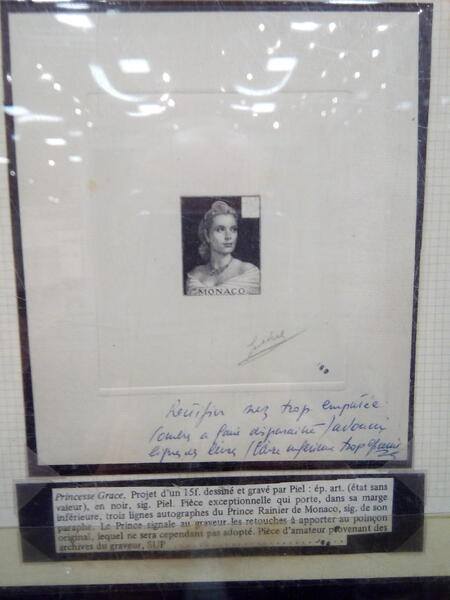 MONACO
Rectifier nez trop empâté
Ombre a faire disparaître / adoucir
lignes des lèvres / lèvre inférieure trop
Princesse Grace. Projet d'un 15f. dessiné et gravé par Piel : ép. art. (état sans
valeur), en noir, sig. Piel. Pièce exceptionnelle qui porte, dans sa marge
inférieure, trois lignes autographes du Prince Rainier de Monaco, sig. de son
paraphe. Le Prince signale au graveur les retouches à apporter au poinçon
original, lequel ne sera cependant pas adopté. Pièce d'amateur provenant des
archives du graveur, SUP